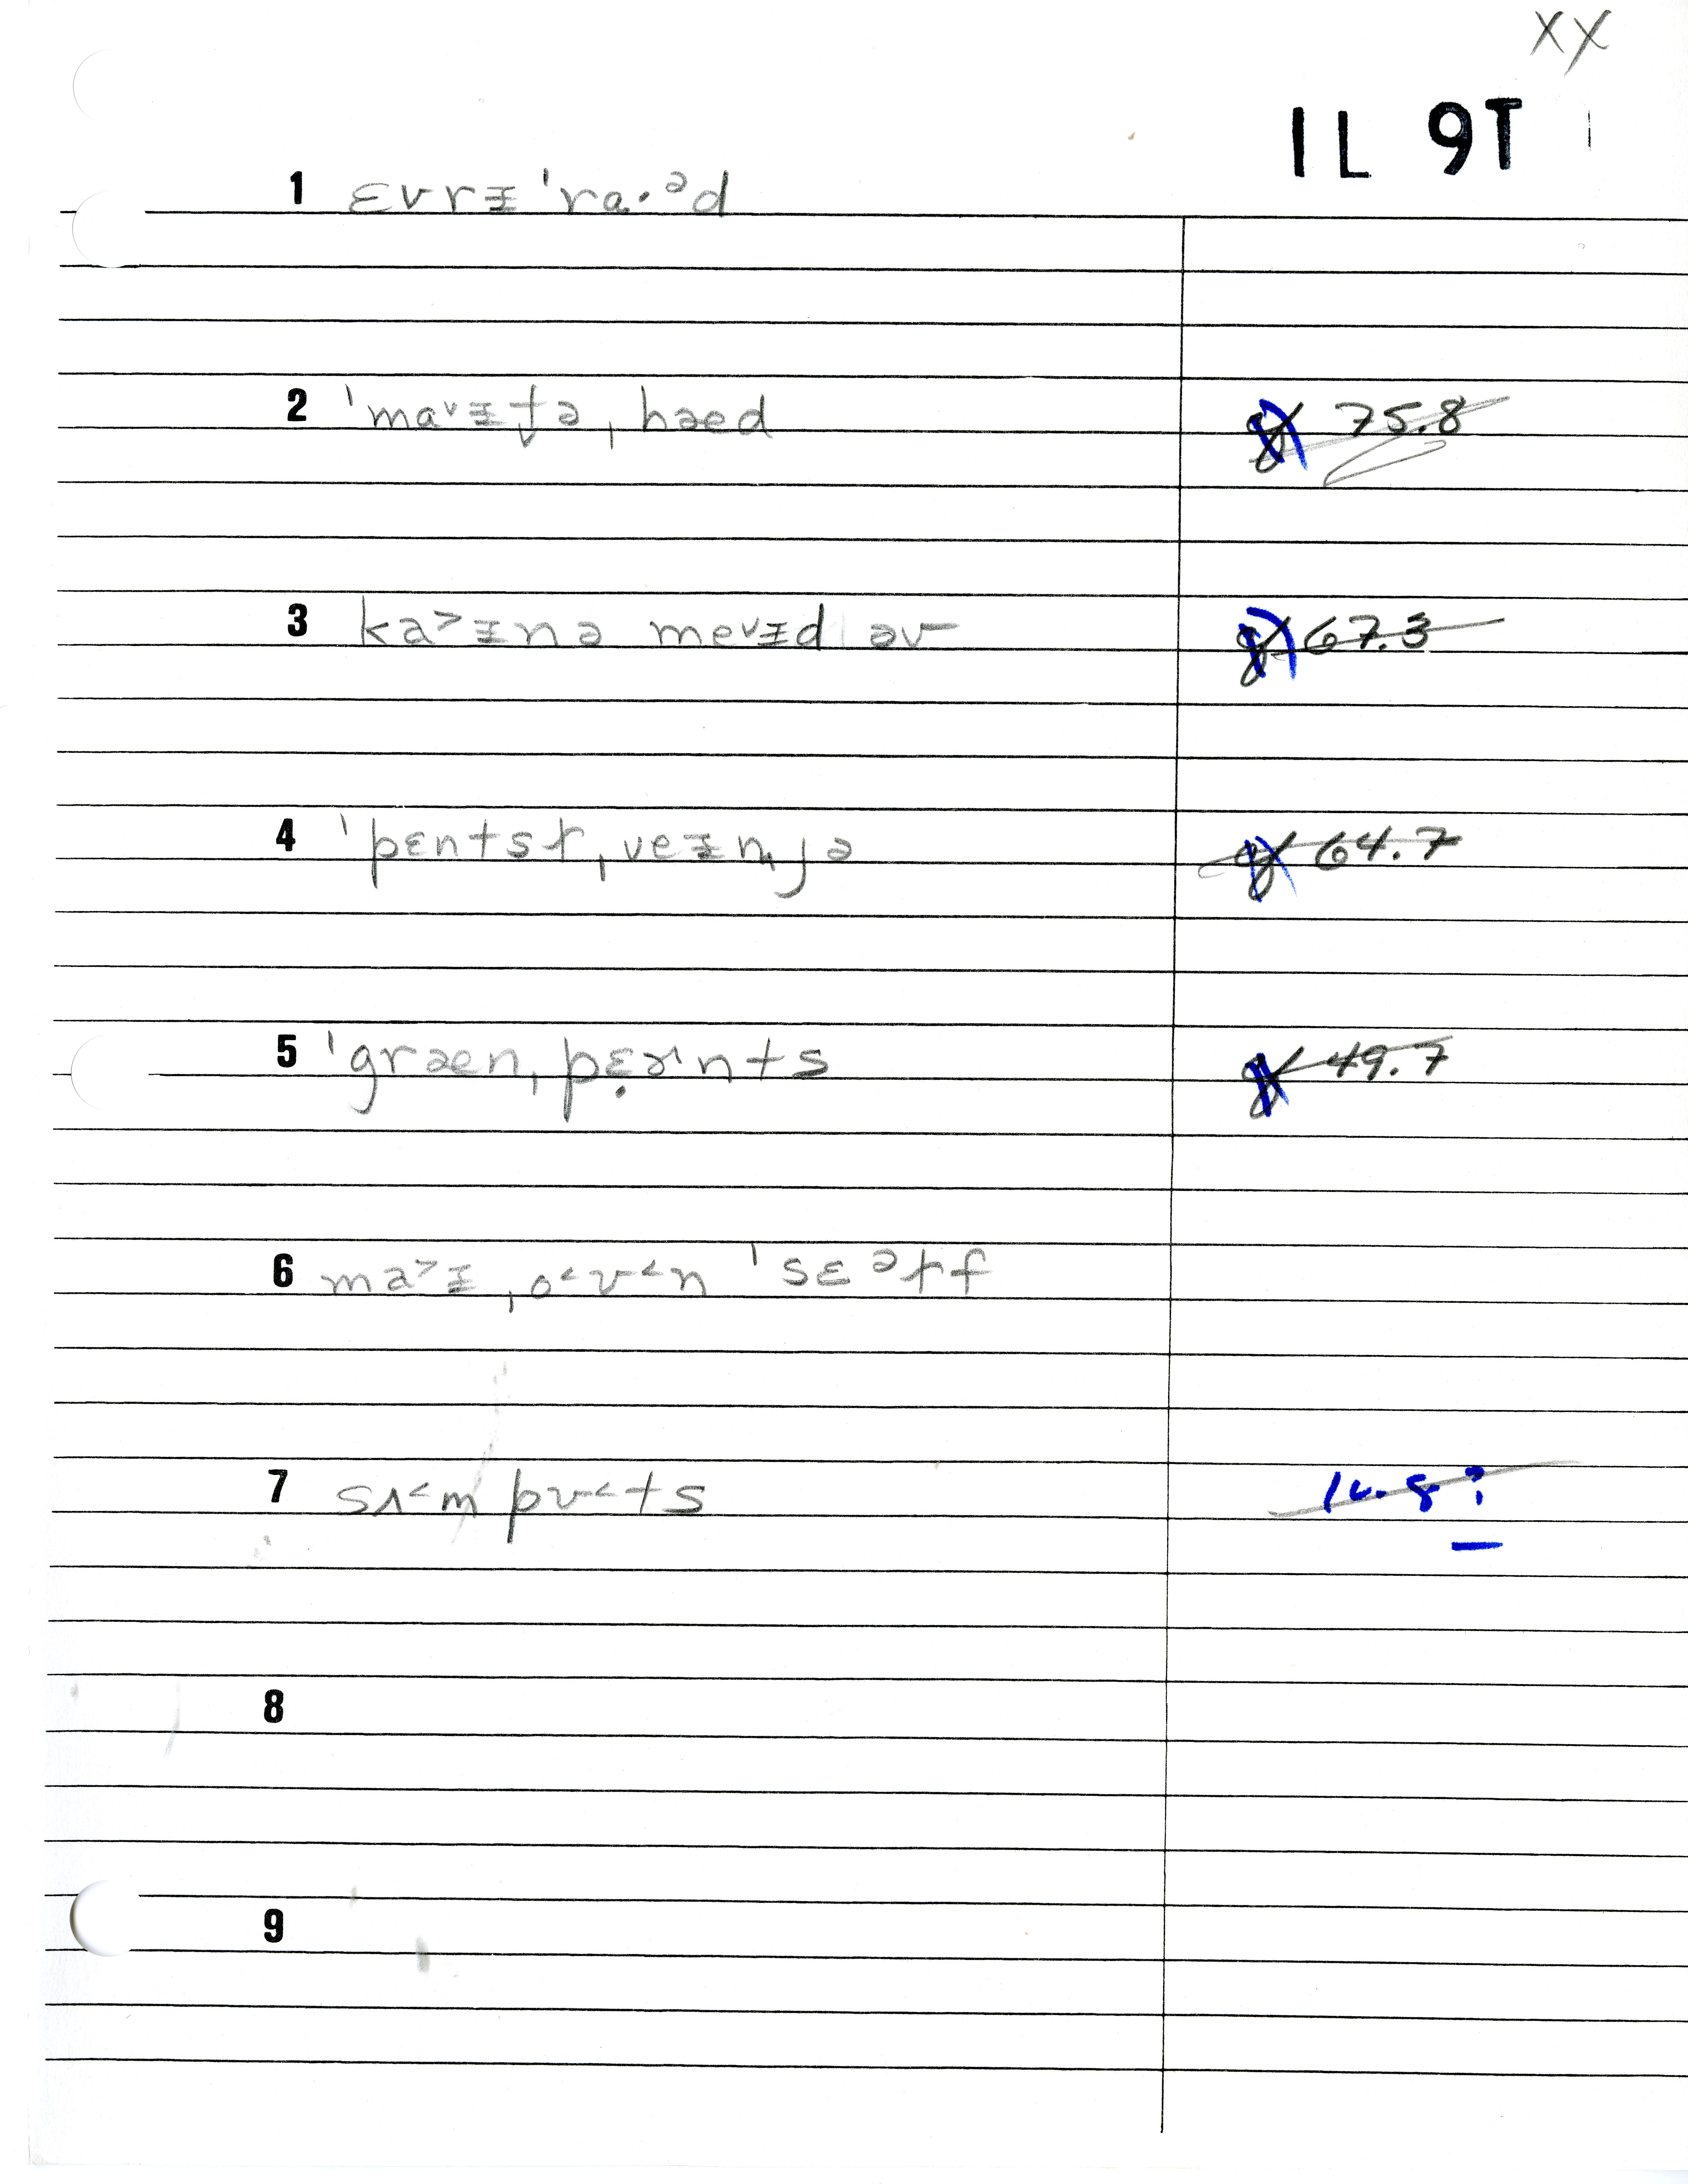 XX
1L 9T
1 ɛvrɪ̵ ˈra·ᵊd
2 ˈmaᵛɪ̵t̬ə ˌhæd 75.8
3 ka˃ɪ̵nə meᵛɪ̵d əv 67.3
4 ˈpɛntsɪ̵ ˌveɪ̵n jə g 64.7
5 ˈgræn ˌpɛ̣ɚnts g 49.7
6 ma˃ɪ̵ ˌo˂ʊ˂n ˈsɛᵊɫf
7 sʌ˂m pʊ˂ts
8
9